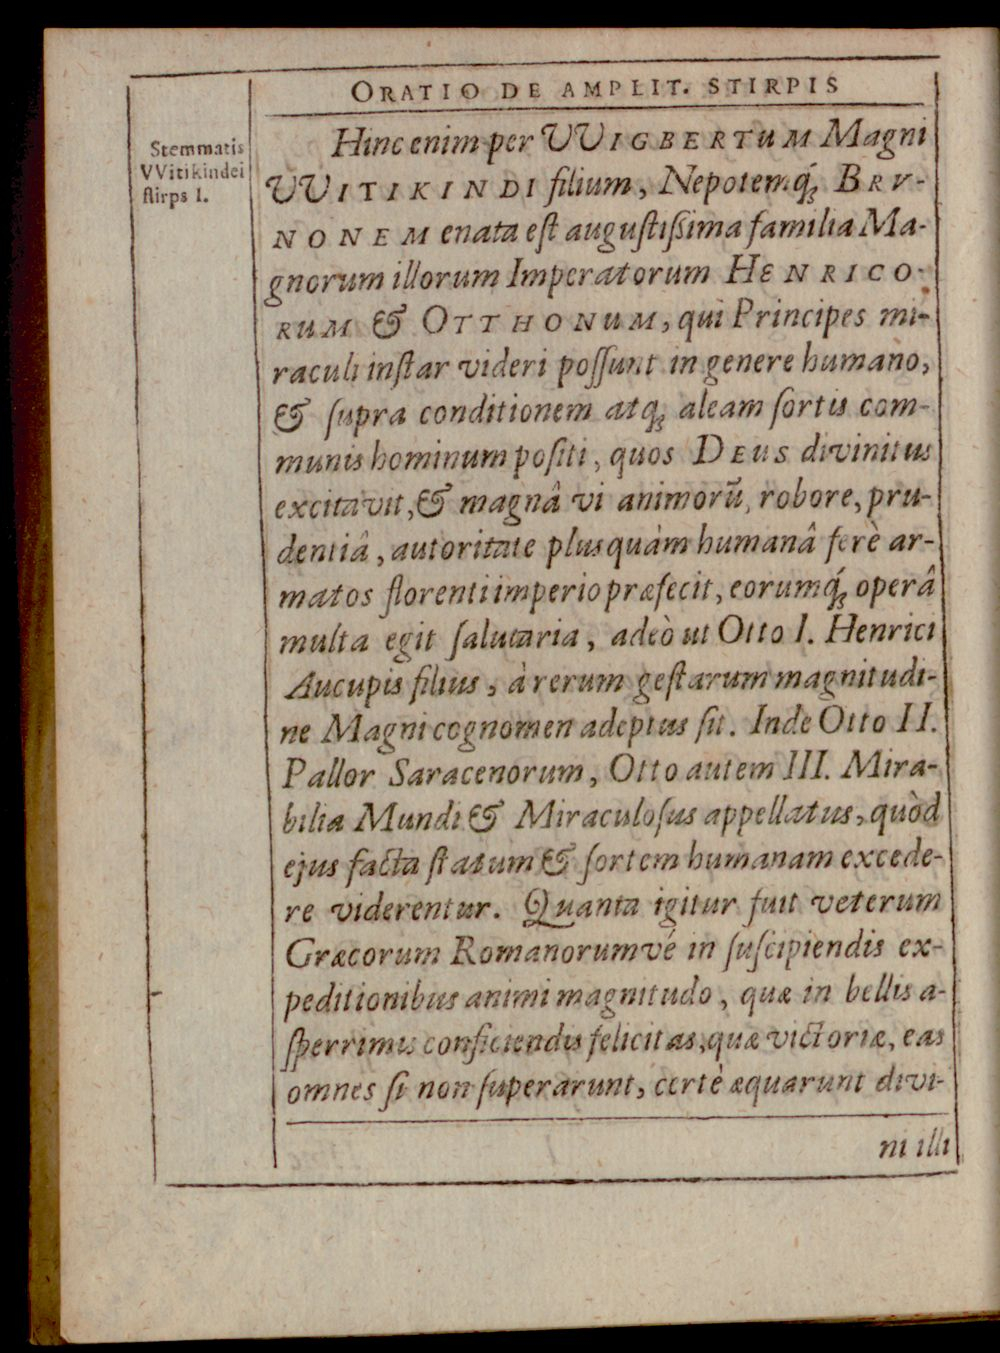 ORATIO DE AMPLIT. STIRPIS
Stemmatis
VVitikindei
ſtirps I.
Hinc enim per VVIGBERTUM Magni
VVITIKINDI filium, Nepotemq́ꝫ BRV-
NONEM enata eſt auguſtiſsima familia Ma-
gnorum illorum Imperatorum HENRICO-
RUM & OTTHONUM, qui Principes mi-
raculi inſtar videri poſſunt in genere humano,
& ſupra conditionem atqꝫ aleam ſortis com-
munis hominum poſiti, quos DEUS divinitus
excitavit, & magnâ vi animorũ, robore, pru-
dentiâ, autoritate plusquàm humanâ ferè ar-
matos florenti imperio præfecit, eorumq́ꝫ operâ
multa egit ſalutaria, adeò ut Otto I. Henrici
Aucupis filius, à rerum geſtarum magnitudi-
ne Magni cognomen adeptus ſit. Inde Otto II.
Pallor Saracenorum, Otto autem III. Mira-
bilia Mundi & Miraculoſus appellatus, quòd
ejus facta ſtatum & ſortem humanam excede-
re viderentur. Quanta igitur fuit veterum
Græcorum Romanorumvé in ſuſcipiendis ex-
peditionibus animi magnitudo, quæ in bellis a-
ſperrimis conficiendis felicitas, quæ victoriæ, eas
omnes ſi non ſuperarunt, certè æquarunt divi-
ni illi